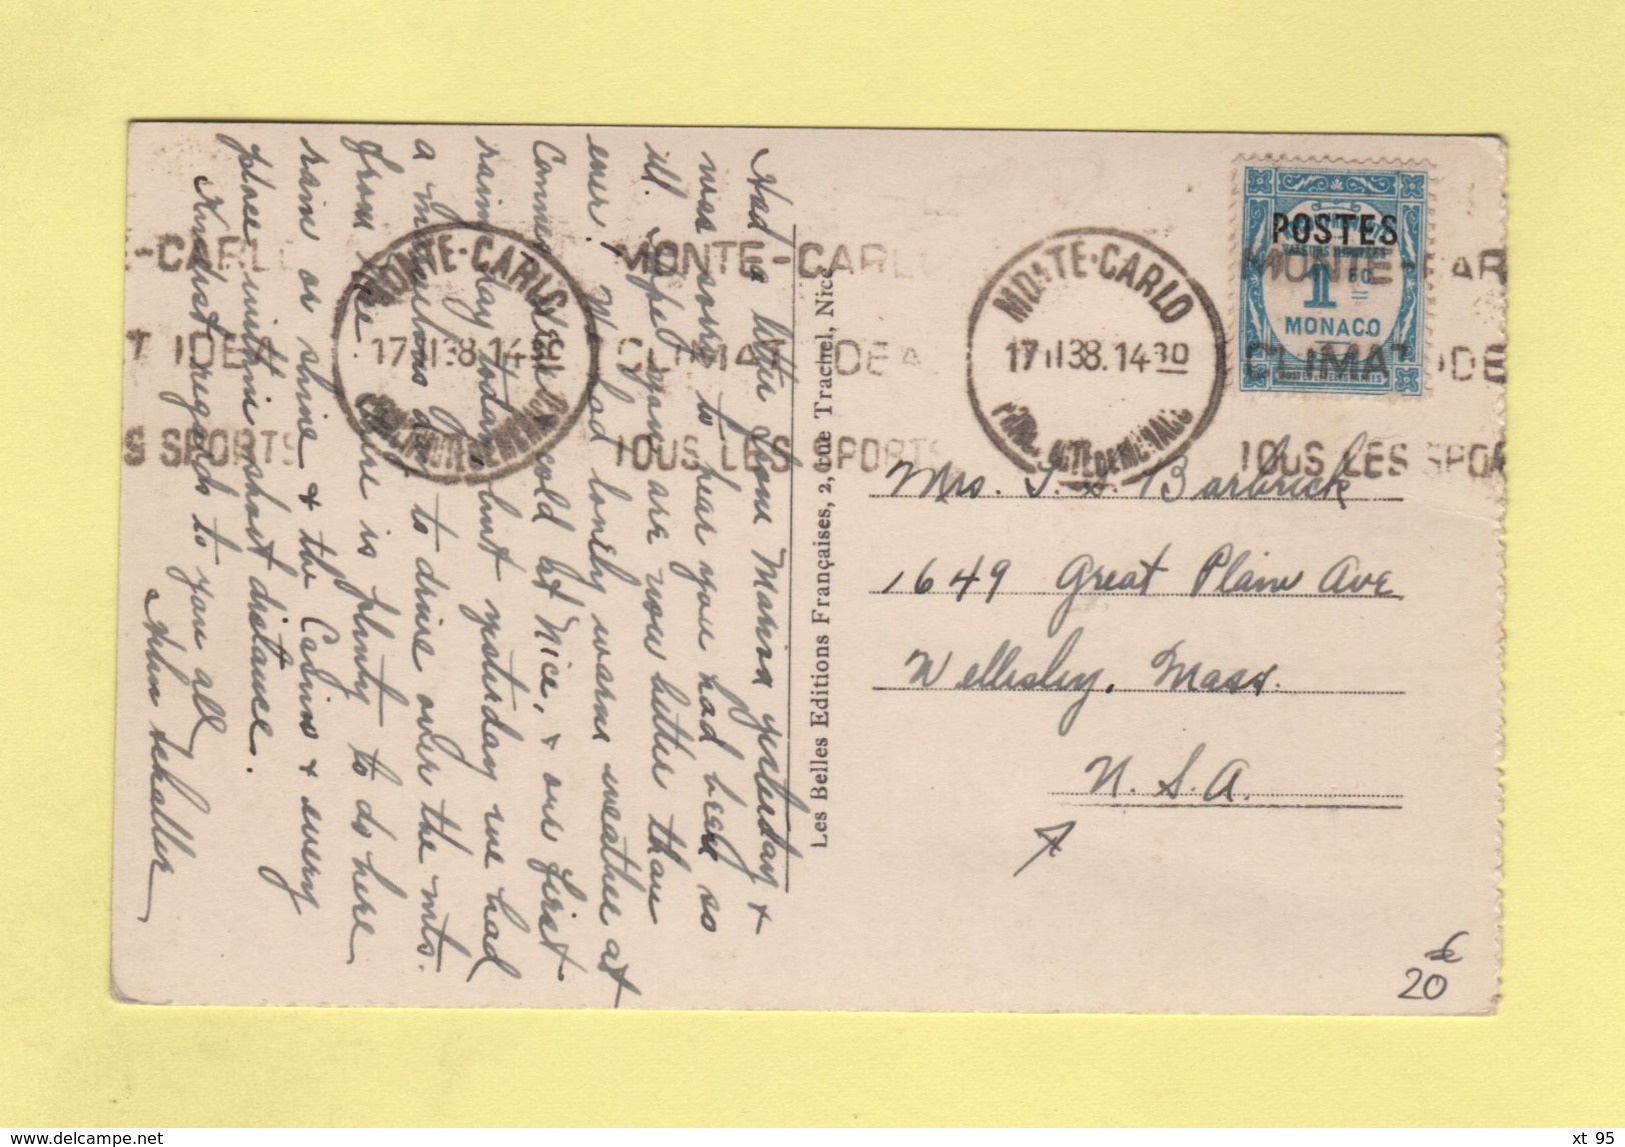 Had a letter from Marion yesterday &
was sorry to hear you had been so
ill. Hope you are now better than
ever. We had lonely warm weather at
Cannes, cold at Nice, & our first
rainy day today but yesterday we had
a marvelous day to drive over the mts.
from Nice. There is plenty to do here
rain or shine & the Casino & every
place within short distance.
Kindest regards to you all
Schaller
Les Belles Editions Françaises, 2, rue Trachel, Nice
MONTE-CARLO
17 II 38. 14 30
MONTE-CARLO
CLIMAT IDEAL
TOUS LES SPORTS
MONTE-CARLO
17 II 38. 14 30
MONTE-CAR
CLIMAT IDE
TOUS LES SPOR
E-CARL
T IDEA
S SPORTS
POSTES
1 FC
MONACO
Mrs. I. S. Barbrick
1649 Great Plain Ave
Wellesley, Mass.
U.S.A.
20 €
xt 95
delcampe.net